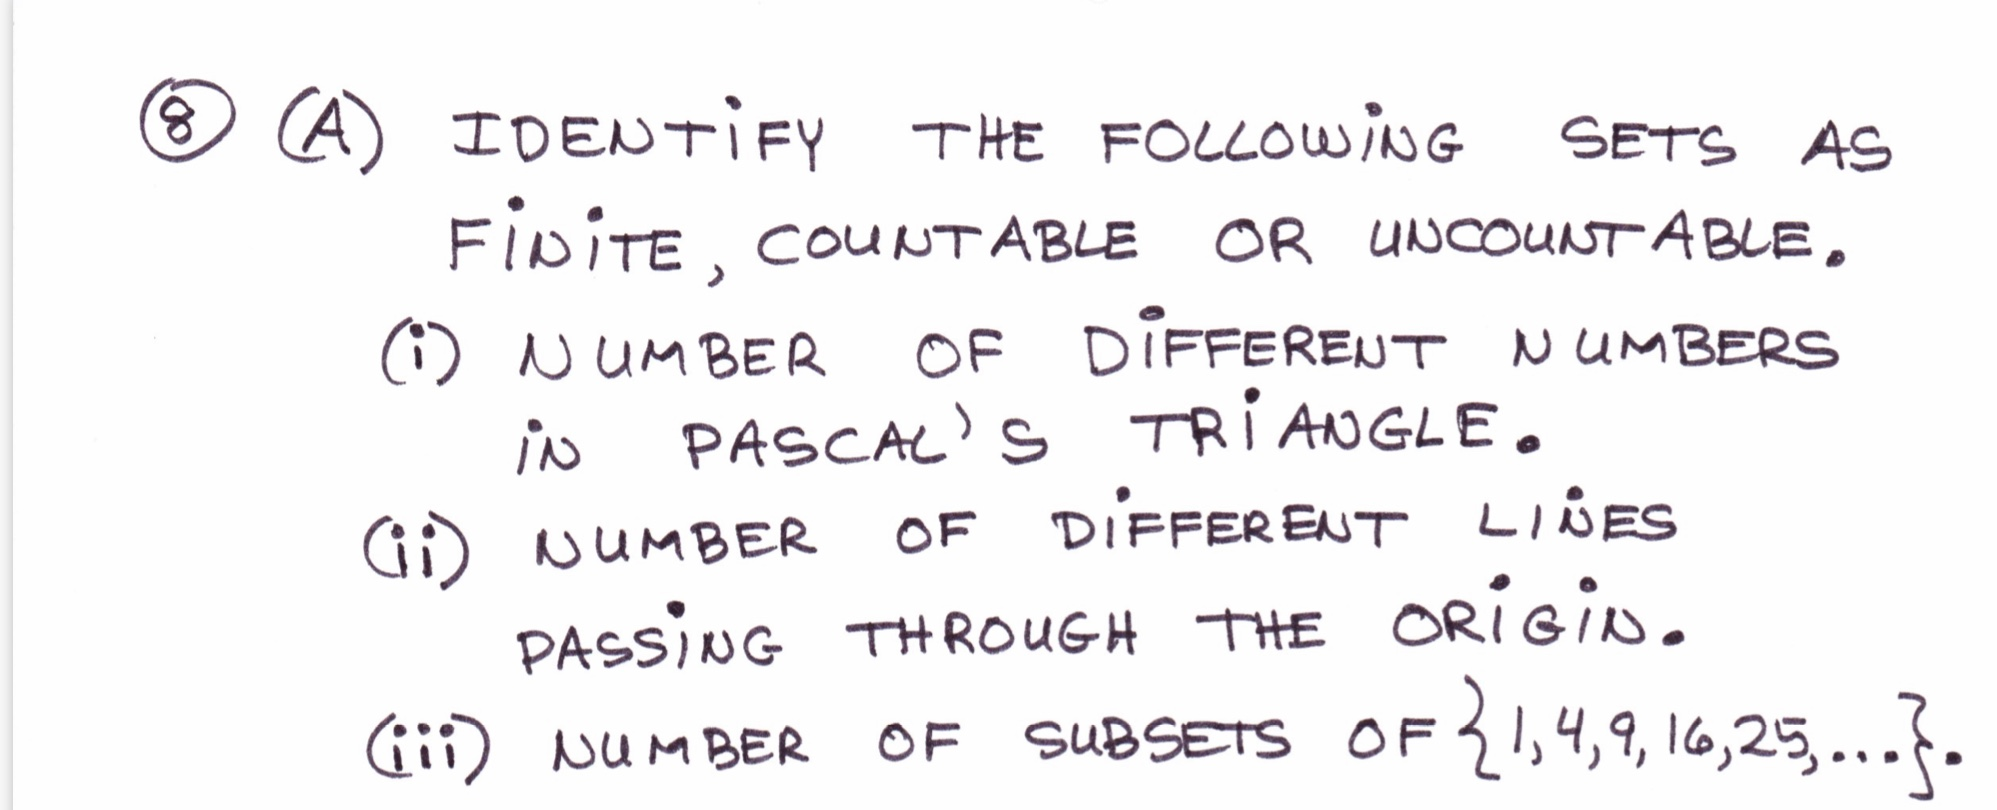 ⑧ (A) IDENTIFY THE FOLLOWING SETS AS
FINITE, COUNTABLE OR UNCOUNTABLE.
(i) NUMBER OF DIFFERENT NUMBERS
IN PASCAL'S TRIANGLE.
(ii) NUMBER OF DIFFERENT LINES
PASSING THROUGH THE ORIGIN.
(iii) NUMBER OF SUBSETS OF {1,4,9,16,25,...}.